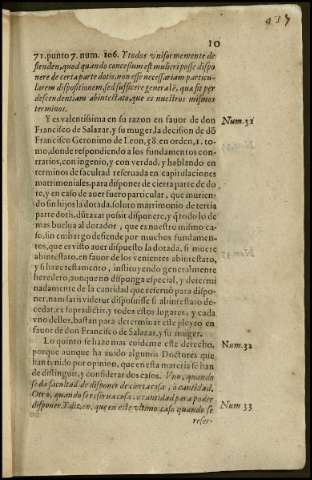 10
71. punto 7. num. 106. Y todos vniformemente de
fienden, quod quando concessum est mulieri posse dispo
nere de certa parte dotis, non esse necessariam particu-
larem dispositionem, sed sufficere generalẽ, qua fit per
descendentiam abintestato, que es nuestros mismos
terminos.
Y es valentissima en su razon en fauor de don
Francisco de Salazar, y su muger, la decision de dõ
Francisco Geronimo de Leon, 58. en orden, 1. to-
mo, donde respondiendo a los fundamentos con-
trarios, con ingenio, y con verdad, y hablando en
terminos de facultad reseruada en capitulaciones
matrimoniales, para disponer de cierta parte de do
te, y en caso de auer fuero particular, que murien-
do sin hijos la dotada, soluto matrimonio de tertia
parte dotis, dũtaxat possit disponere, y q̃ todo lo de
mas buelua al dotador, que es nuestro mismo ca-
so, sin embargo defiende por muchos fundamen-
tos, que es visto auer dispuesto la dotada, si muere
abintestato, en fauor de los venientes abintestato,
y si haze testamento, instituyendo generalmente
heredero, aunque no disponga especial, y determi
nadamente de la cantidad que reseruò para dispo-
ner, nam iura videtur disposuisse si abintestato de-
cedat, ex supradictis, y todos estos lugares, y cada
vno dellos, bastan para determinar este pleyto en
fauor de don Francisco de Salazar, y su muger.
Lo quinto se haze mas euidente este derecho,
porque aunque ha auido algunos Doctores que
han tenido por opinion, que en esta materia se han
de distinguir, y considerar dos casos. Vno, quando
se da facultad de disponer de cierta cosa, ò cantidad.
Otro, quando se reserua cosa, ò cantidad para poder
disponer. Y dizen, que en este vltimo caso quando se
reser-
Num. 31
Num. 32
Num. 33